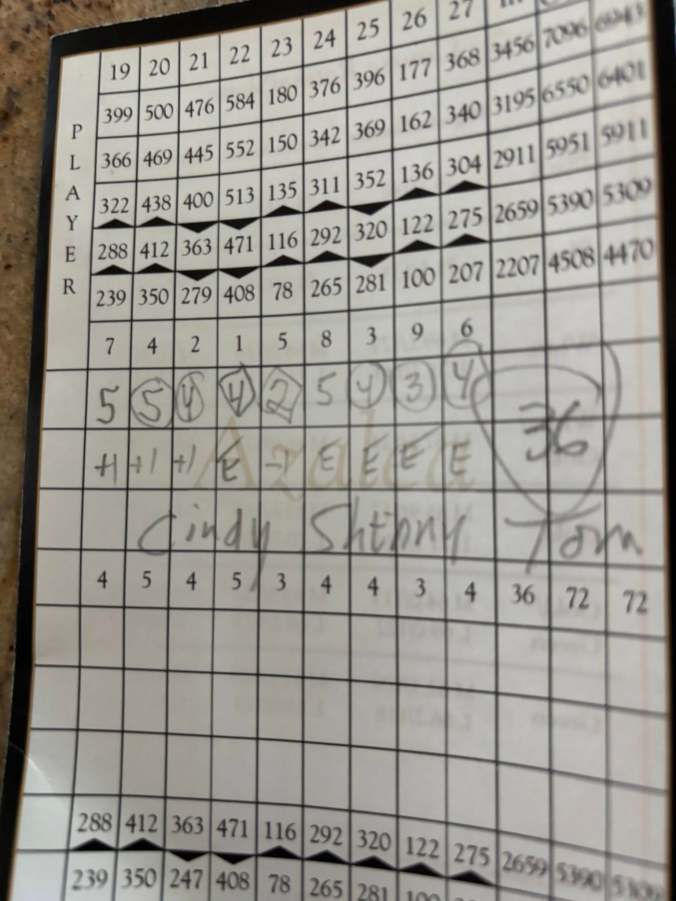 19 20 21 22 23 24 25 26 27
399 500 476 584 180 376 396 177 368 3456 7096 6943
366 469 445 552 150 342 369 162 340 3195 6550 6401
322 438 400 513 135 311 352 136 304 2911 5951 5911
288 412 363 471 116 292 320 122 275 2659 5390 5309
239 350 279 408 78 265 281 100 207 2207 4508 4470
PLAYER
7 4 2 1 5 8 3 9 6
5 5 4 4 2 5 4 3 4 36
+1 +1 +1 E -1 E E E E
Azalea
Cindy Tom
4 5 4 5 3 4 4 3 4 36 72 72
288 412 363 471 116 292 320 122 275 2659 5390 5309
239 350 247 408 78 265 281